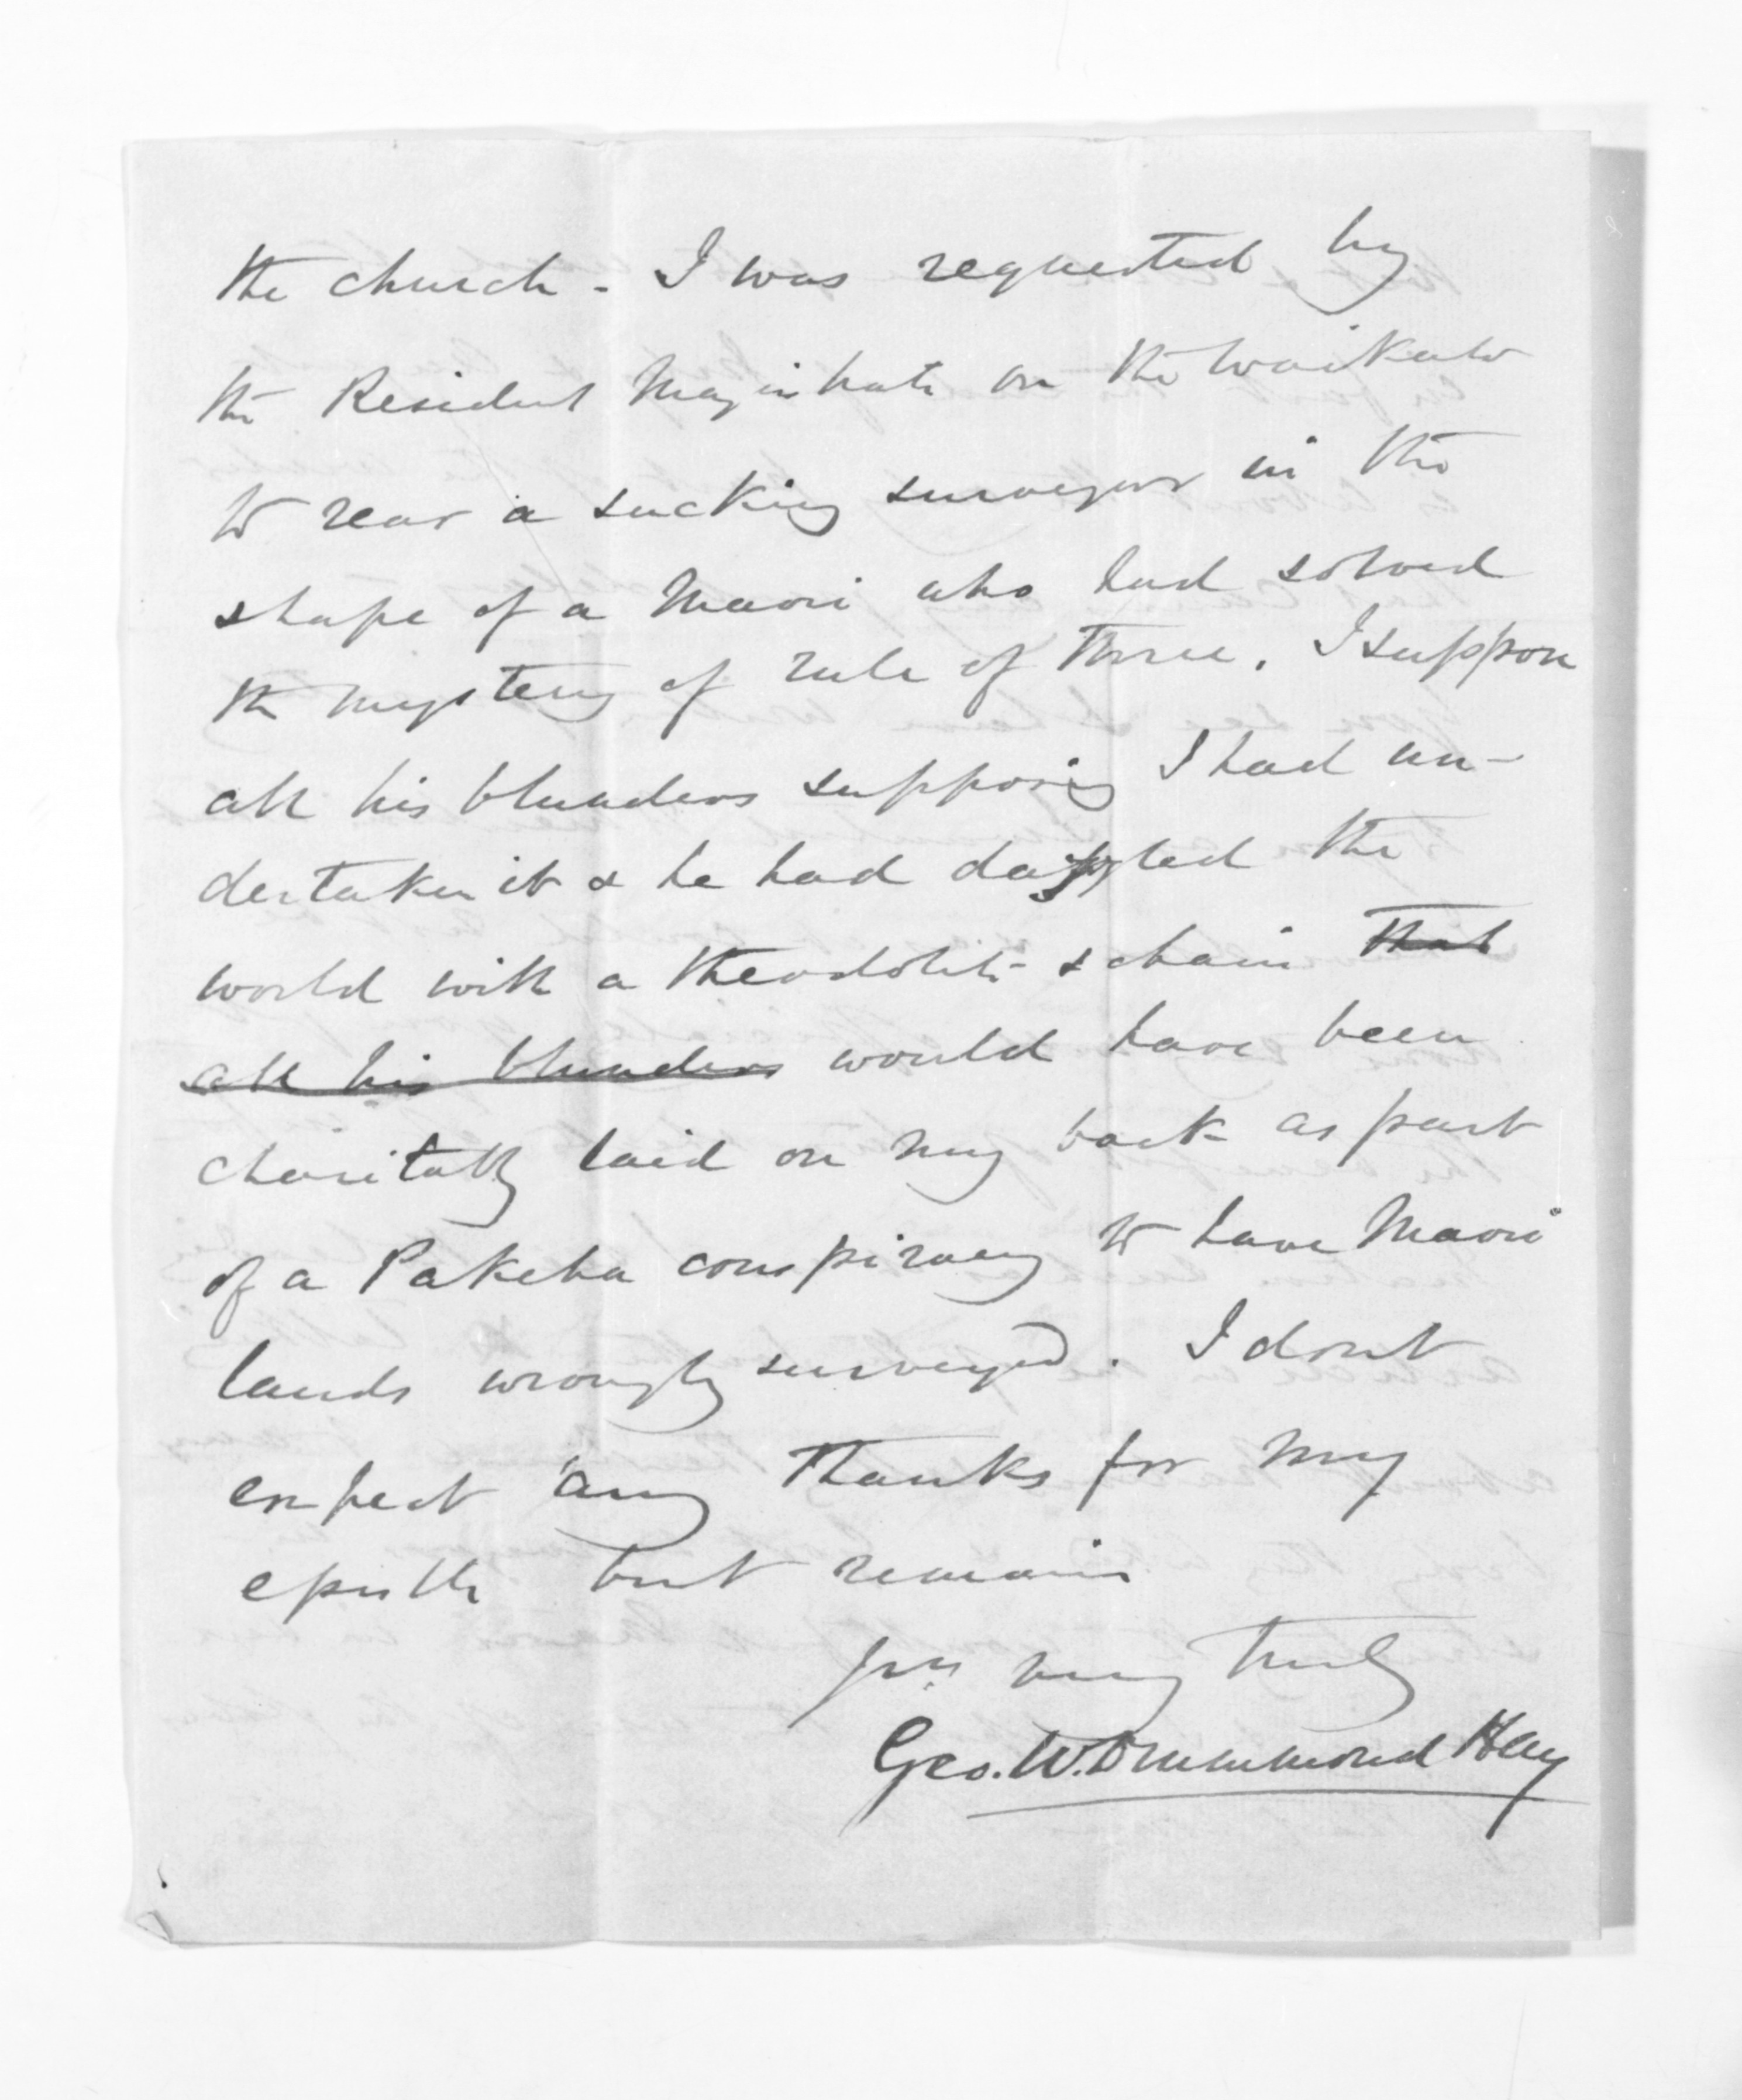 the church - I was requested by
the Resident Magistrate on the Waikato
to rear a sucking surveyor in the
shape of a Maori who had solved
the mystery of rule of three. I suppose
all his blunders supposing I had un-
dertaken it & he had dazzled the
world with a theodolite & chain that
all his blunders would have been
charitably laid on my back as part
of a Pakeha conspiracy to have Maori
lands wrongly surveyed. I dont
expect any thanks for my
epistle but remain
yrs very truly
Geo. W. Drummond Hay